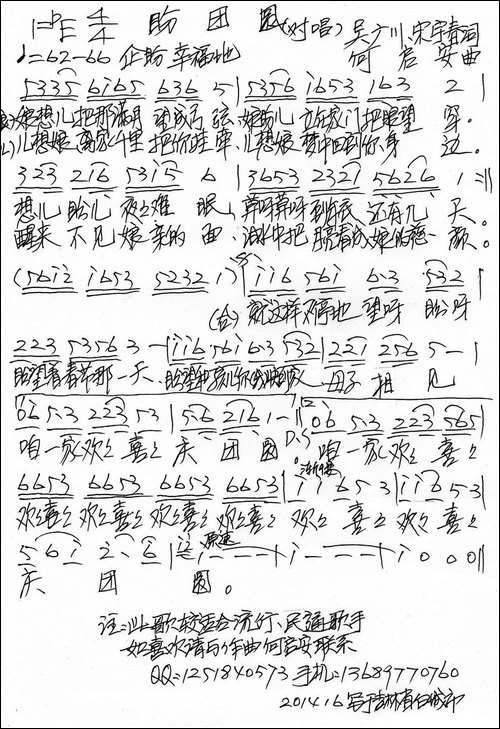 1=♭E 4/4 盼 团 圆 (对唱) 吴广川、宋宇春词
♩=62-66 企盼 幸福地 何 启 安 曲
5335 6165 636 5 | 5356 1653 163 2 |
娘想儿把那满月 望成弓 弦, 娘的儿 把眼望 穿。
儿想娘 离家千里 把你牵 牵, 儿想娘 梦中回到你身 边。
323 216 5315 6 | 3653 2321 5626 1 :||
想儿 盼儿 夜夜难 眠, 算呀算呀到 还有几 天。
醒来 不见 娘亲的 面, 泪水中把 看成娘的 颜。
(5612 1653 5232 1) | 116 561 6·3 532 |
(合) 就这样 不停地 望呀 盼呀
223 5356 3 - | 116 561 6·3 532 | 221 256 5 - |
盼望着春节那一天、盼望 母子 相 见
06 53 223 53 | 56 216 1 - || 06 53 223 565 |
咱一家欢欢喜喜 庆 团 圆。 D.S. 咱一家欢欢 喜喜
6653 6653 6653 6653 | 116 53 | 116 53 |
欢欢喜喜 欢欢喜喜 欢欢喜喜 欢欢喜喜 欢欢 喜喜 欢欢 喜喜
5 6 1 2· 6 | 1 - - - | 1 - - - | 1 0 0 0 ||
原速
庆 团 圆。
注:此歌较适合流行、民通歌手
如喜欢请与作曲何启安联系
QQ=1251840573 手机=13689770760
2014.1.6 写于吉林省白城市